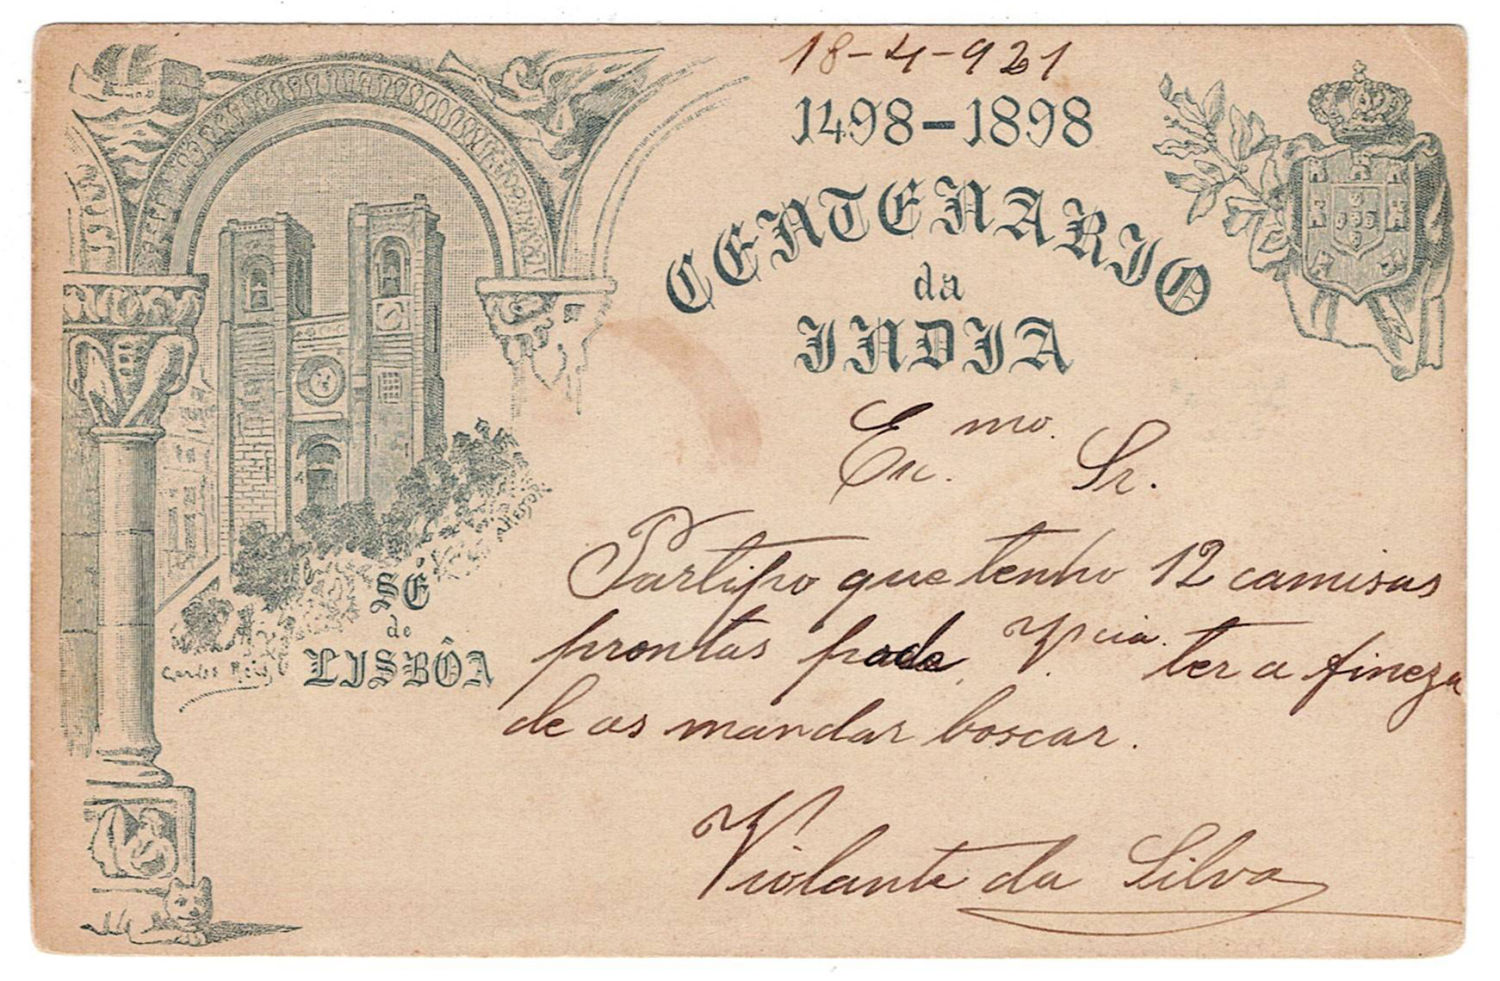 18-4-921
1498-1898
CENTENARIO
da
INDIA
SÉ
de
LISBÔA
Carlos Reis
Ex.mo Sr.
Partipo que tenho 12 camisas
prontas pode, V.cia ter a fineza
de as mandar boscar.
Violante da Silva